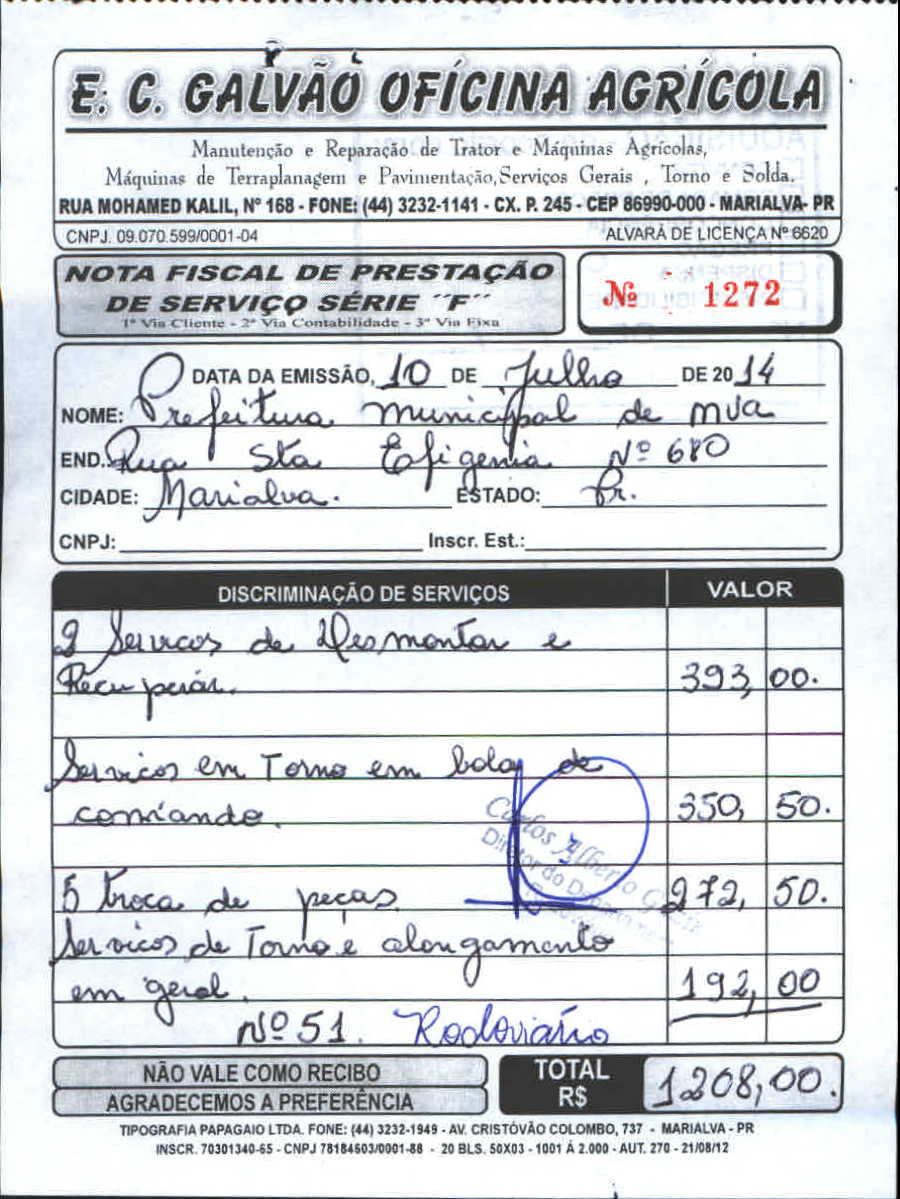 E. C. GALVÃO OFÍCINA AGRÍCOLA
Manutenção e Reparação de Trator e Máquinas Agrícolas,
Máquinas de Terraplanagem e Pavimentação, Serviços Gerais , Torno e Solda.
RUA MOHAMED KALIL, Nº 168 - FONE: (44) 3232-1141 - CX. P. 245 - CEP 86990-000 - MARIALVA- PR
CNPJ. 09.070.599/0001-04 ALVARÁ DE LICENÇA Nº 6620
NOTA FISCAL DE PRESTAÇÃO
DE SERVIÇO SÉRIE "F"
1ª Via Cliente - 2ª Via Contabilidade - 3ª Via Fixa
Nº 1272
DATA DA EMISSÃO, 10 DE Julho DE 2014
NOME: Prefeitura municipal de mva
END.: Rua Sta Efigenia Nº 680
CIDADE: Marialva. ESTADO: Pr.
CNPJ: Inscr. Est.:
DISCRIMINAÇÃO DE SERVIÇOS VALOR
2 Servicos de desmontar e
Recuperar. 393,00.
Servicos em Torno em bola de
comando. 350,50.
5 troca de peças 272,50.
Servicos de Torno e alongamento
em geral. 192,00
Nº 51. Rodoviário
Carlos Alberto
Diretor do
NÃO VALE COMO RECIBO
AGRADECEMOS A PREFERÊNCIA
TOTAL R$ 1208,00.
TIPOGRAFIA PAPAGAIO LTDA. FONE: (44) 3232-1949 - AV. CRISTÓVÃO COLOMBO, 737 - MARIALVA - PR
INSCR. 70301340-65 - CNPJ 78184603/0001-88 - 20 BLS. 50X03 - 1001 Á 2.000 - AUT. 270 - 21/08/12